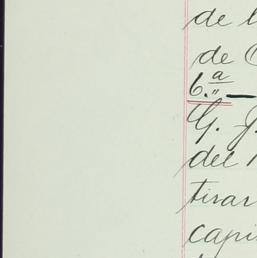 de
de
6.ª —
G. J.
del
tirar
capi